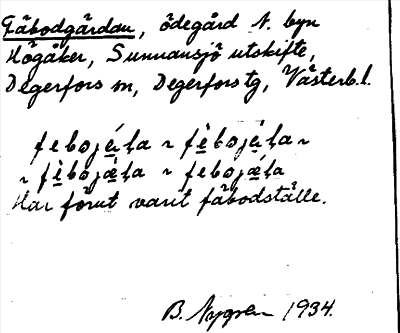 Fäbodgårdan, ödegård N. byn
Högåker, Sunnansjö utskifte,
Degerfors sn, Degerfors tg, Västerb. l.
febojá̱ḷa ~ fè̱bojá̱ḷa ~
~ fè̱bojǽ̱ḷa ~ febojǽ̱ḷa
Har förut varit fäbodställe.
B. Nygren 1934.